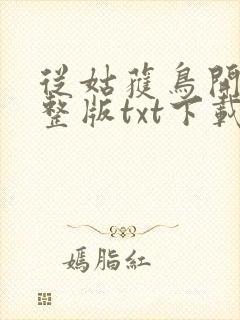 從姑獲鳥開
整版txt下載
媽脂紅